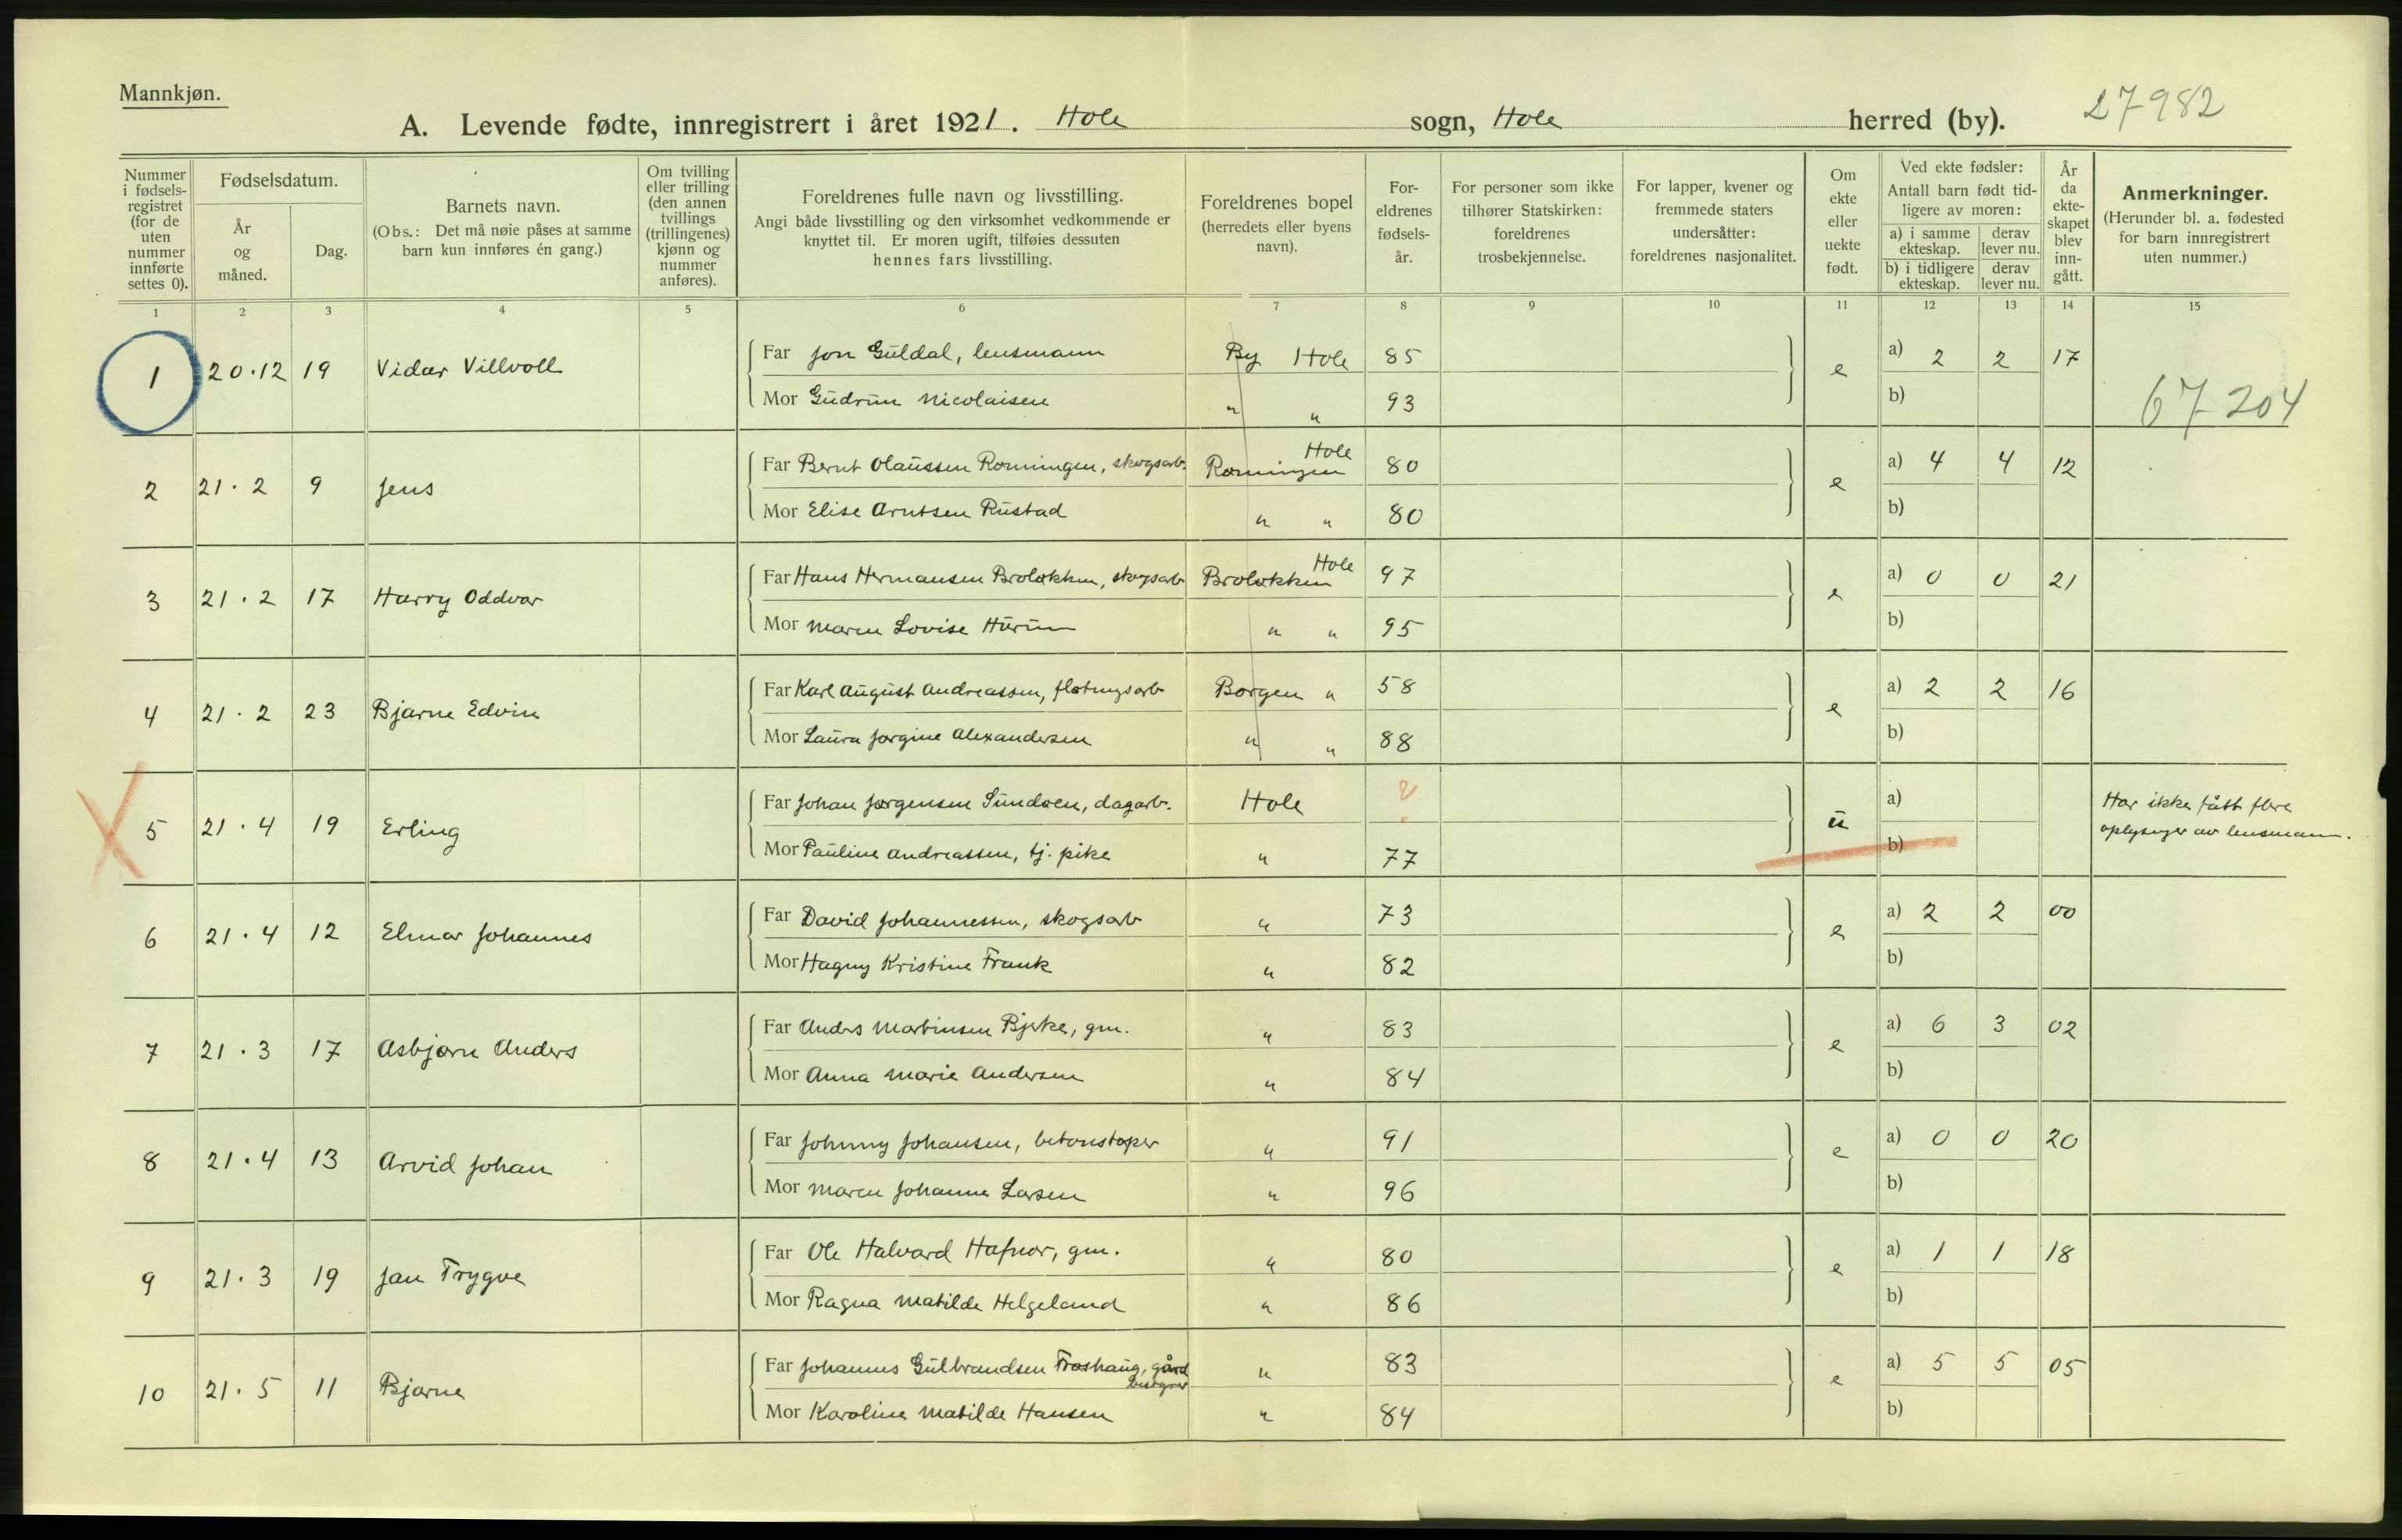 Mannkjøn.
A. Levende fødte, innregistrert i året 1921. Hole sogn, Hole herred (by). 27982
Nummer i fødselsregistret (for de uten nummer innførte settes 0).
Fødselsdatum.
År og måned.
Dag.
Barnets navn.
(Obs.: Det må nøie påses at samme barn kun innføres én gang.)
Om tvilling eller trilling (den annen tvillings (trillingenes) kjønn og nummer anføres).
Foreldrenes fulle navn og livsstilling.
Angi både livsstilling og den virksomhet vedkommende er knyttet til. Er moren ugift, tilføies dessuten hennes fars livsstilling.
Foreldrenes bopel (herredets eller byens navn).
Foreldrenes fødselsår.
For personer som ikke tilhører Statskirken: foreldrenes trosbekjennelse.
For lapper, kvener og fremmede staters undersåtter: foreldrenes nasjonalitet.
Om ekte eller uekte født.
Ved ekte fødsler: Antall barn født tidligere av moren:
a) i samme ekteskap. derav lever nu.
b) i tidligere ekteskap. derav lever nu.
År da ekteskapet blev inngått.
Anmerkninger.
(Herunder bl. a. fødested for barn innregistrert uten nummer.)
1 2 3 4 5 6 7 8 9 10 11 12 13 14 15
1 20.12 19 Vidar Villvoll Far Jon Guldal, lensmann By Hole 85 e a) 2 2 17
Mor Gudrun Nicolaisen " " 93 b) 67204
2 21.2 9 Jens Far Bernt Olaussen Rønningen, skogsarb. Rønningen Hole 80 e a) 4 4 12
Mor Elise Arntsen Rustad " " 80 b)
3 21.2 17 Harry Oddvar Far Hans Hermansen Broløkken, skogsarb Broløkken Hole 97 e a) 0 0 21
Mor Maren Lovise Hurum " " 95 b)
4 21.2 23 Bjarne Edvin Far Karl August Andreassen, fløtningsarb Borgen " 58 e a) 2 2 16
Mor Laura Jørgine Alexandersen " " 88 b)
5 21.4 19 Erling Far Johan Jørgensen Sundøen, dagarb. Hole ? u a) Har ikke fått flere
Mor Pauline Andreassen, tj. pike " 77 b) oplysnger av lensmann.
6 21.4 12 Elmar Johannes Far David Johannessen, skogsarb " 73 e a) 2 2 00
Mor Hagny Kristine Frank " 82 b)
7 21.3 17 Asbjørn Anders Far Anders Martinsen Bjerke, gm. " 83 e a) 6 3 02
Mor Anna Marie Andersen " 84 b)
8 21.4 13 Arvid Johan Far Johnny Johansen, betonstøper " 91 e a) 0 0 20
Mor Maren Johanne Larsen " 96 b)
9 21.3 19 Jan Trygve Far Ole Halvard Hafnor, gm. " 80 e a) 1 1 18
Mor Ragna Matilde Helgeland " 86 b)
10 21.5 11 Bjarne Far Johannes Gulbrandsen Frøshaug, gård " 83 e a) 5 5 05
Mor Karoline Matilde Hansen " 84 b)